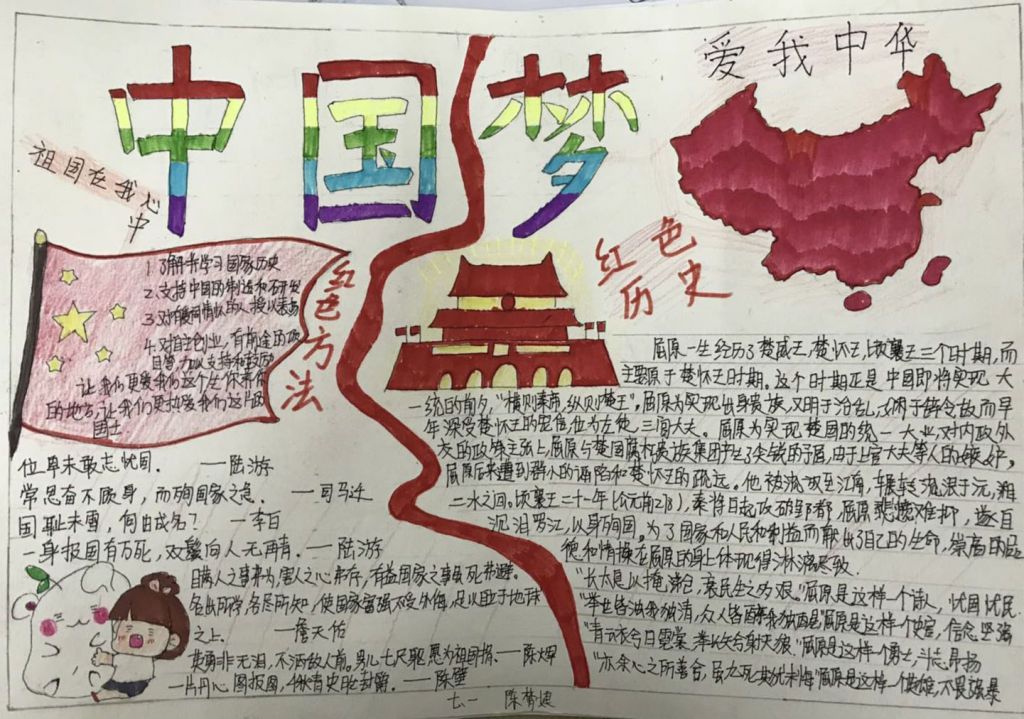 中国梦
爱我中华
祖国在我心中
红色方法
1.了解并学习国家历史
2.支持中国的制造和研发
4.对自主创业,有前途的项
目等力以支持和鼓励
让我们更爱我们这个生你养你
的地方,让我们更热爱我们这片
国土
红色
历史
位卑未敢忘忧国。 ——陆游
常思奋不顾身,而殉国家之急。 ——司马迁
国耻未雪,何由成名? ——李白
一身报国有万死,双鬓向人无再青。——陆游
各出所学,各尽所知,使国家富强不受外侮,足以自立于地球
之上。 ——詹天佑
英勇非无泪,不洒敌人前。男儿七尺躯,愿为祖国捐。——陈辉
一片丹心图报国,
屈原一生经历了楚威王,楚怀王,顷襄王三个时期,而
主要原于楚怀王时期。这个时期正是中国即将实现大
一统的前夕,“横则秦帝,纵则楚王”。屈原为实现出身贵族,又明于治乱,娴于辞令故而早
年深受楚怀王的宠信,位为左徒,三闾大夫。屈原为实现楚国的统一大业,对内政外
交的政策主张上,屈原与楚国腐朽贵族集团产生了尖锐的矛盾,由于上官大夫等人的嫉妒,
屈原后来遭到群小的诬陷和楚怀王的疏远。他被流放至江南,辗转流浪于沅,湘
二水之间。顷襄王二十一年(公元前278),秦将白起攻破郢都,屈原悲愤难抑,遂自
沉汨罗江,以身殉国。为了国家和人民和利益而献出了自己的生命,崇高的品
德和情操在屈原的身上体现得淋漓尽致。
“长太息以掩涕兮,哀民生之为艰。”屈原是这样一个诗人,忧国忧民
“举世皆浊我独清,众人皆醉我独醒”屈原是这样一个使官,信念坚强
“青云衣兮白霓裳,举长矢兮射天狼。”屈原是这样一个勇士,斗志昂扬
“亦余心之所善兮,虽九死其犹未悔”屈原是这样一个英雄,不畏强暴
七一 陈梦婕